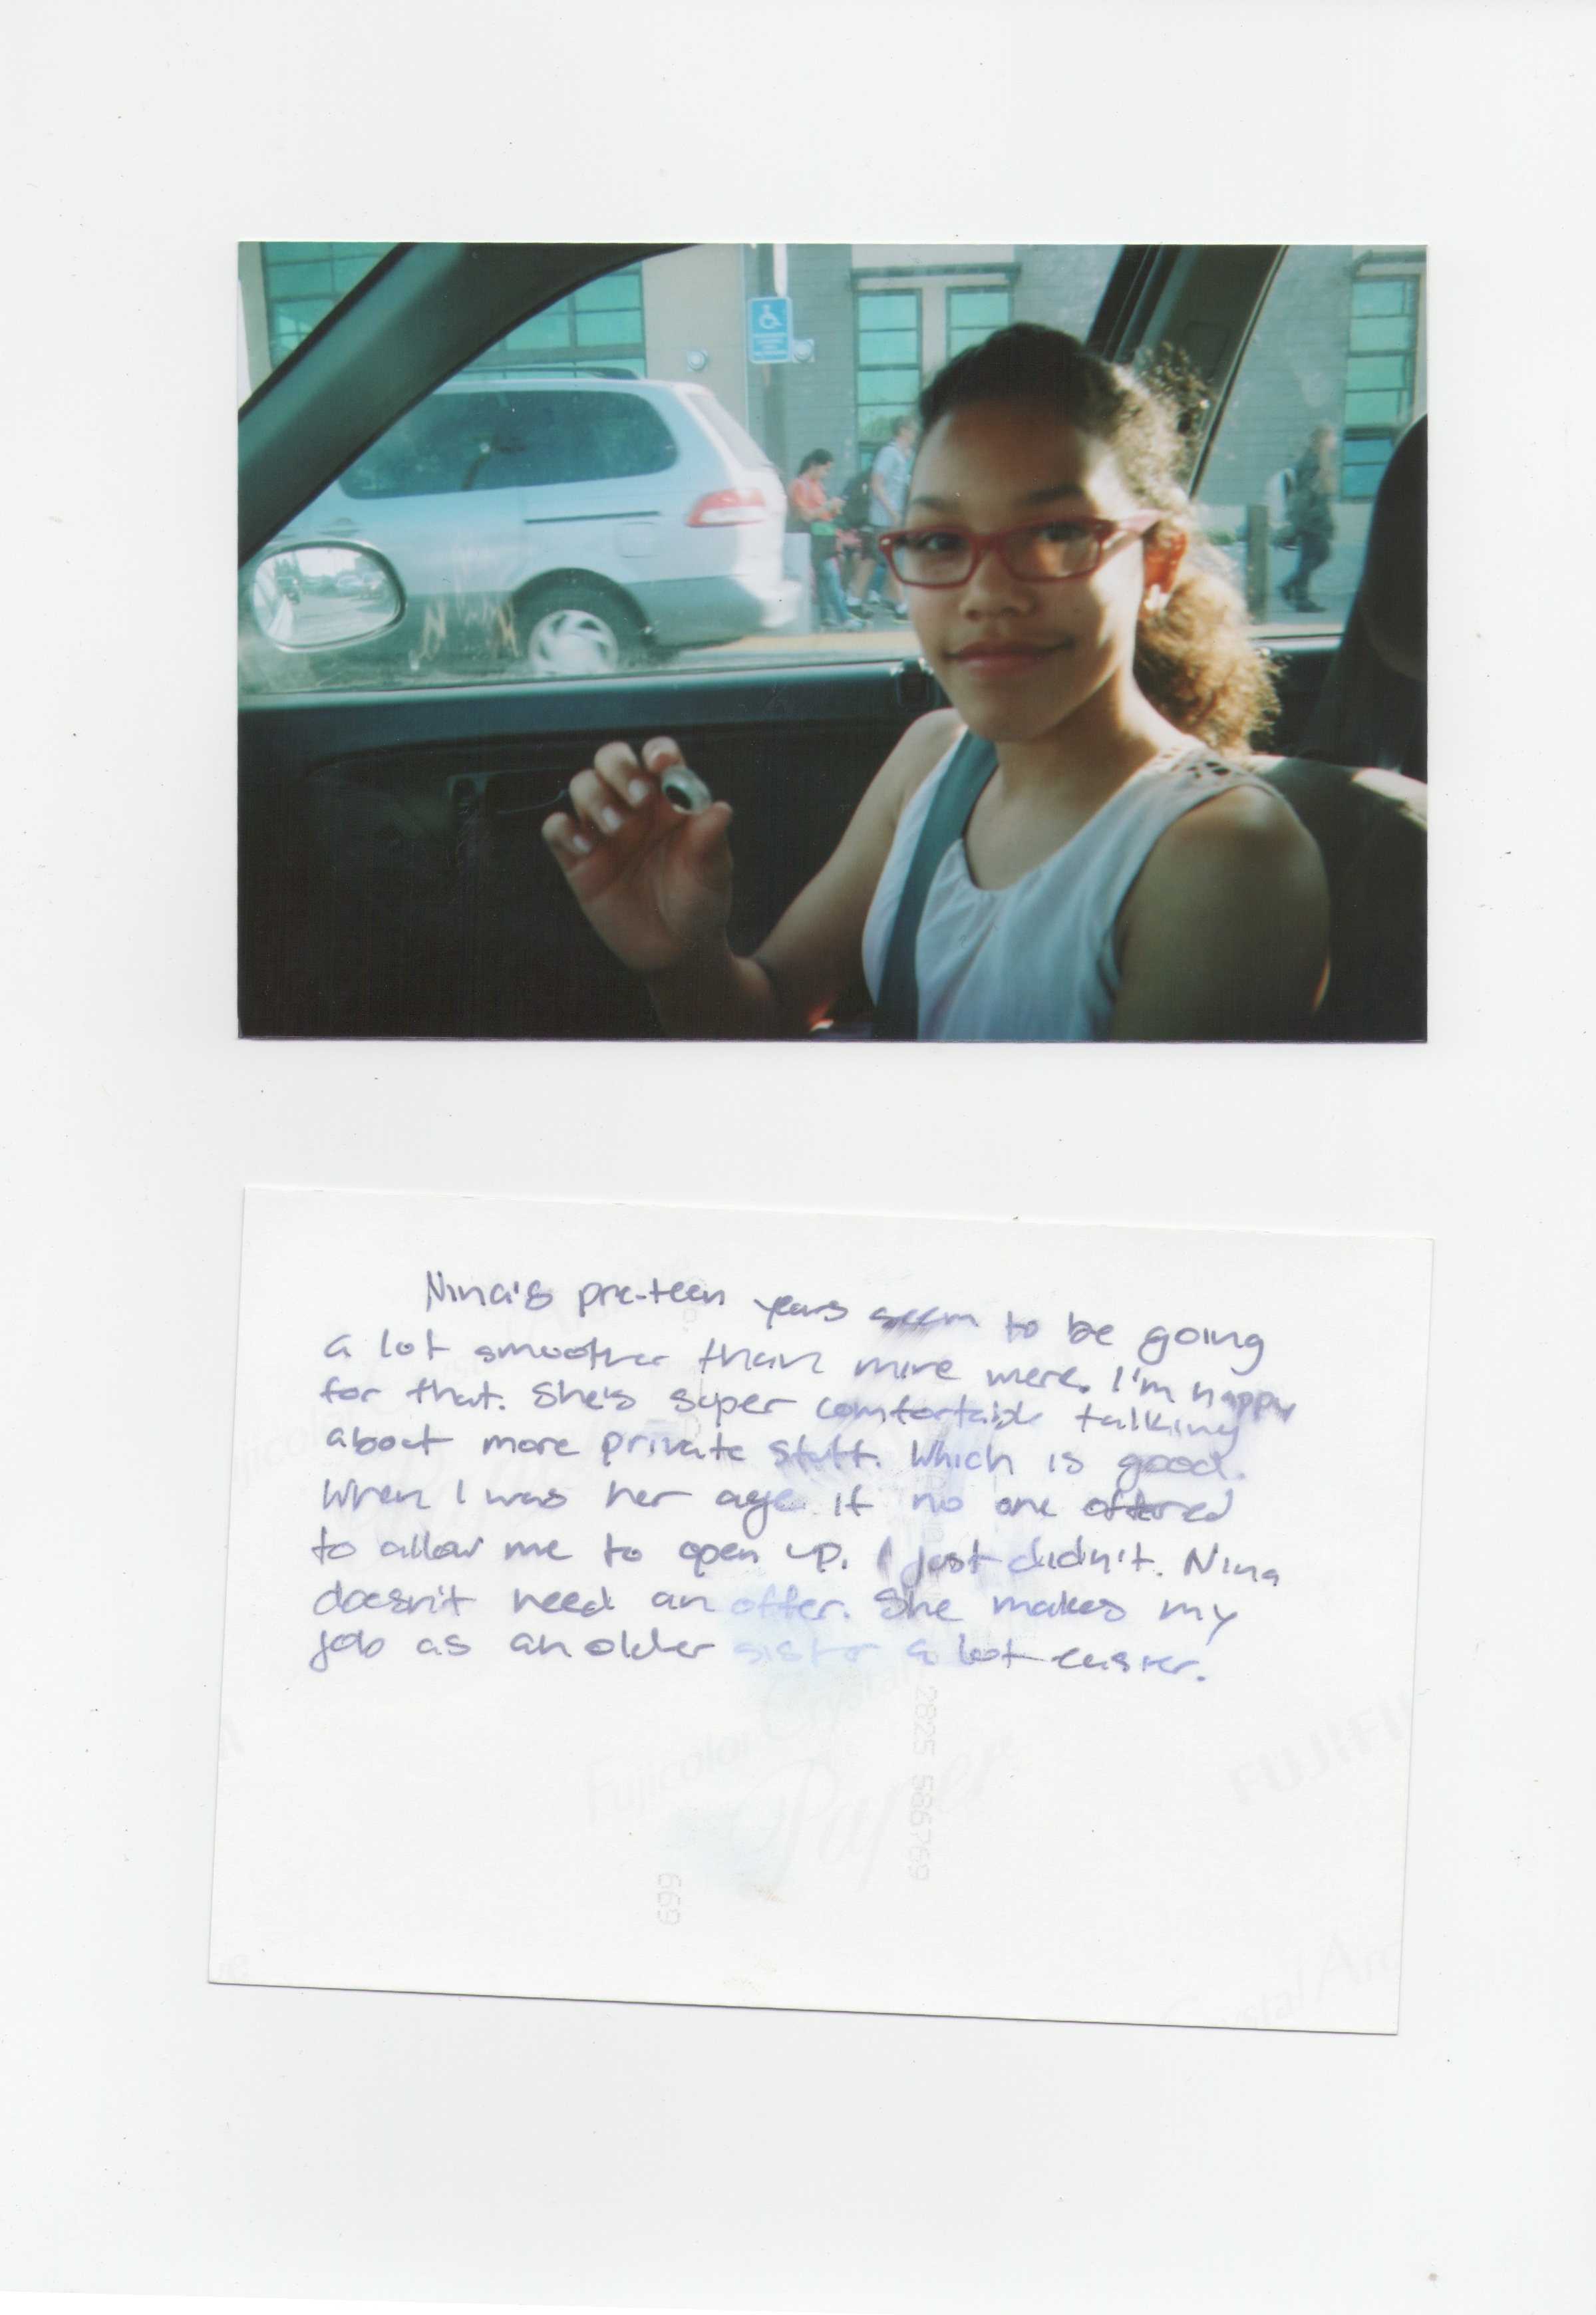 Nina's pre-teen years seem to be going
a lot smoother than mine were. I'm happy
for that. She's super comfortable talking
about more private stuff. Which is good.
When I was her age if no one offered
to allow me to open up. I just didn't. Nina
doesn't need an offer. She makes my
job as an older sister a lot easier.
Fujicolor Crystal
Paper
FUJIFI
2825 586769
669
Crystal Arc